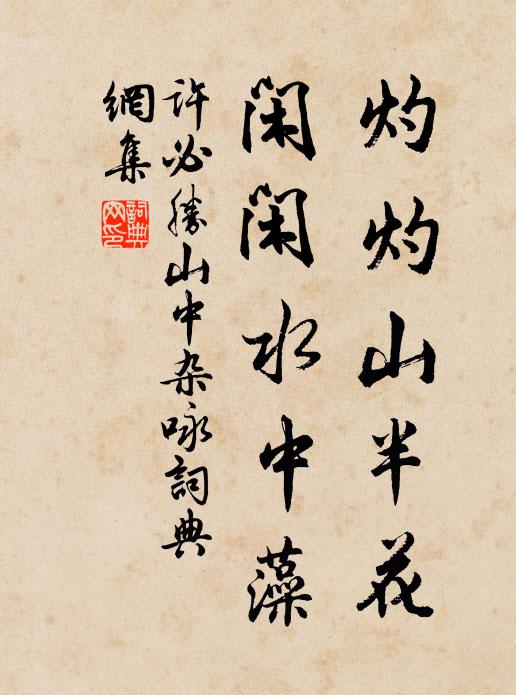 灼灼山半花
闲闲水中藻
许必勝山中杂咏詞典
網集
詞典
网印